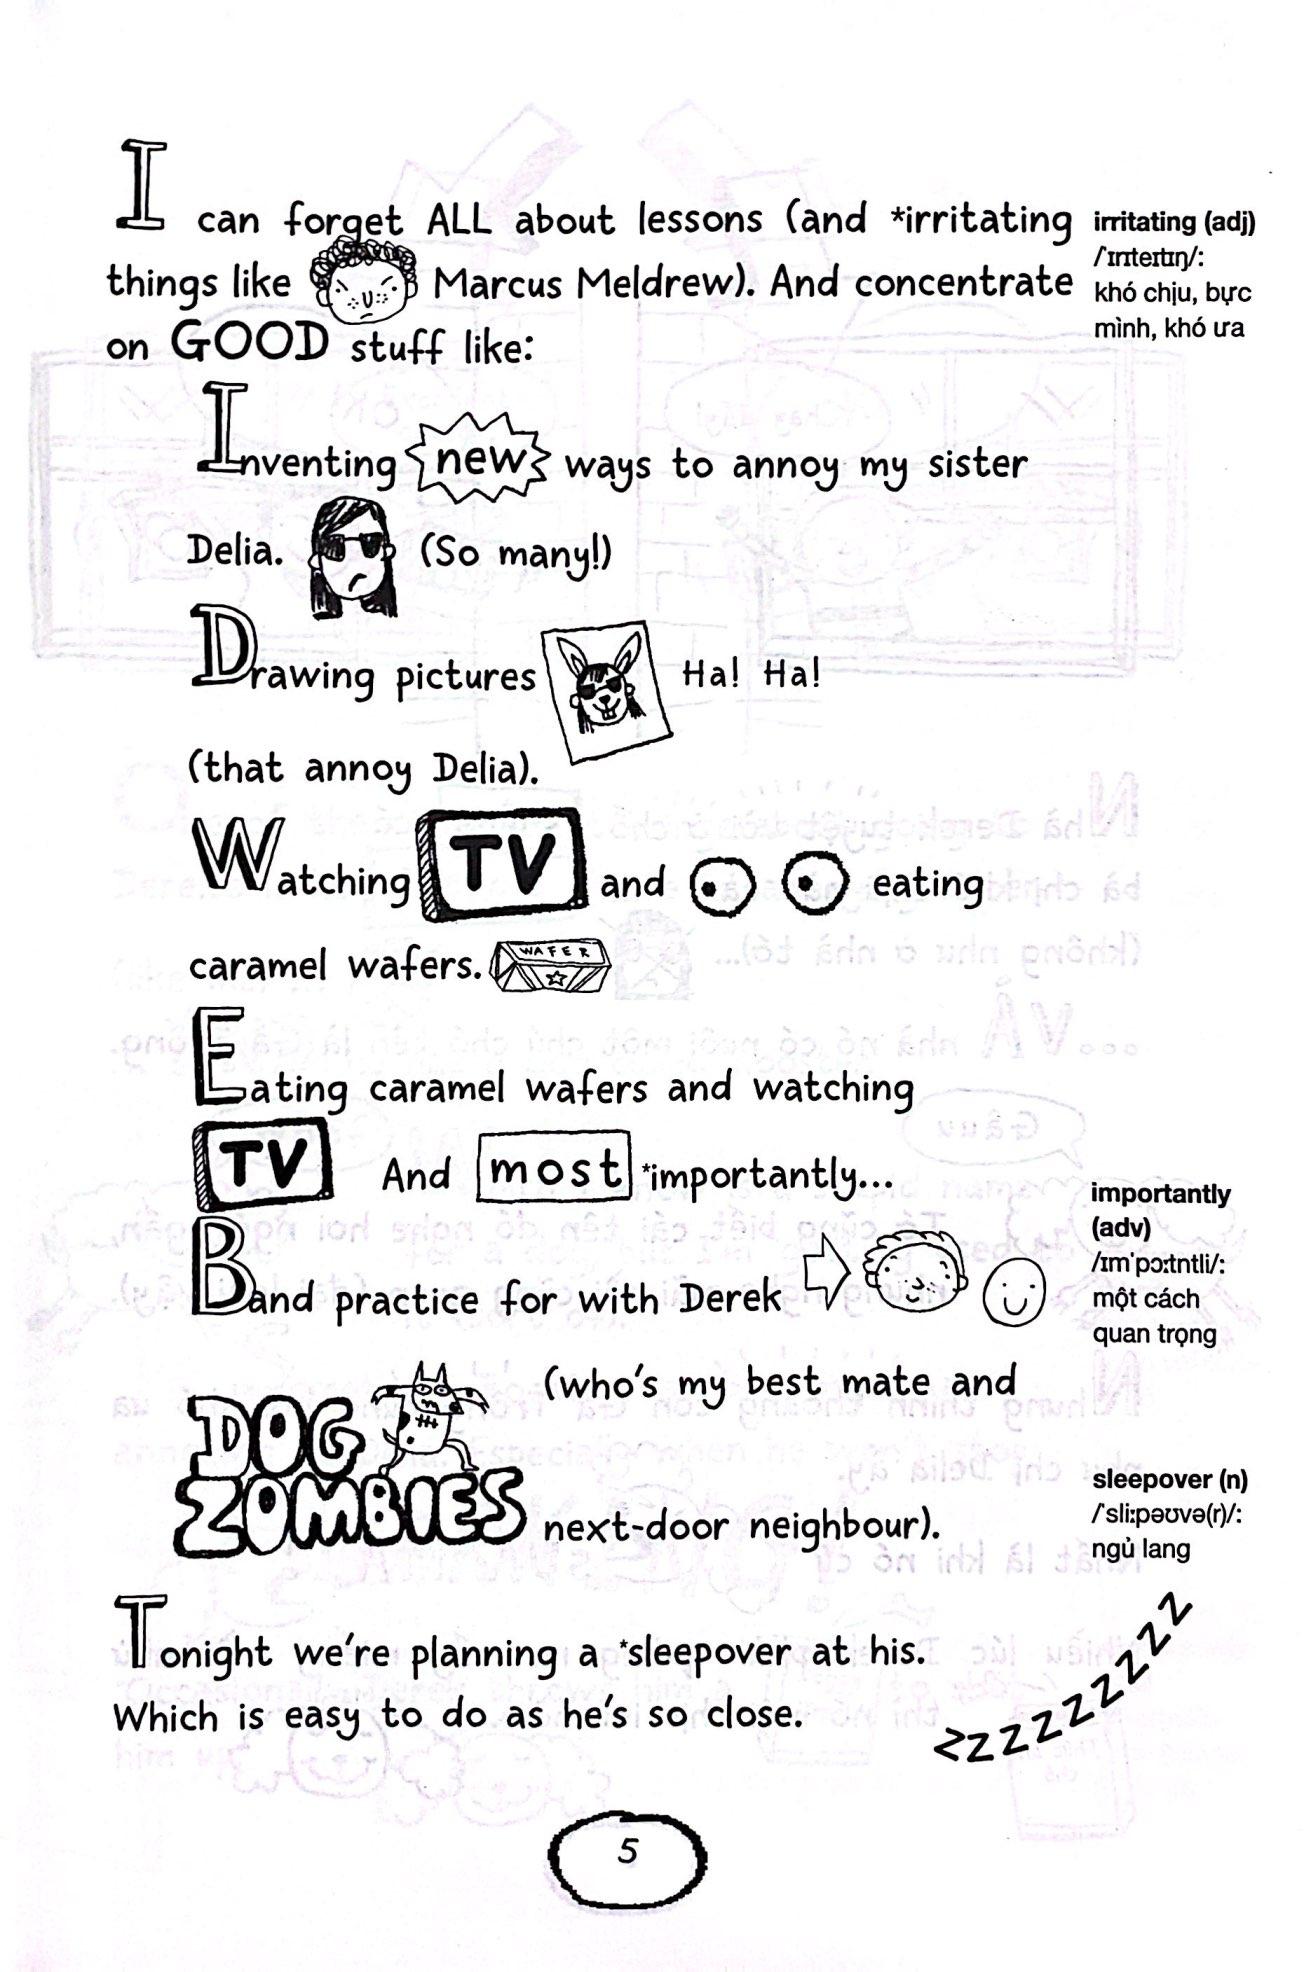 I can forget ALL about lessons (and *irritating
things like Marcus Meldrew). And concentrate
on GOOD stuff like:
Inventing new ways to annoy my sister
Delia. (So many!)
Drawing pictures Ha! Ha!
(that annoy Delia).
Watching TV and eating
caramel wafers. WAFER
Eating caramel wafers and watching
TV And most *importantly...
Band practice for with Derek
DOG ZOMBIES
(who's my best mate and
next-door neighbour).
Tonight we're planning a *sleepover at his.
Which is easy to do as he's so close.
zzzzzzzzzz
irritating (adj)
/ˈɪrɪteɪtɪŋ/:
khó chịu, bực
mình, khó ưa
importantly
(adv)
/ɪmˈpɔːtntli/:
một cách
quan trọng
sleepover (n)
/ˈsliːpəʊvə(r)/:
ngủ lang
5